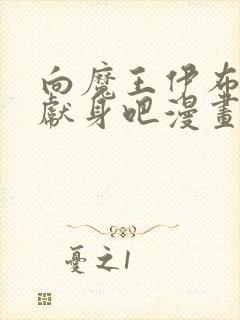 向魔王伊布
獻身吧漫畫
憂之1